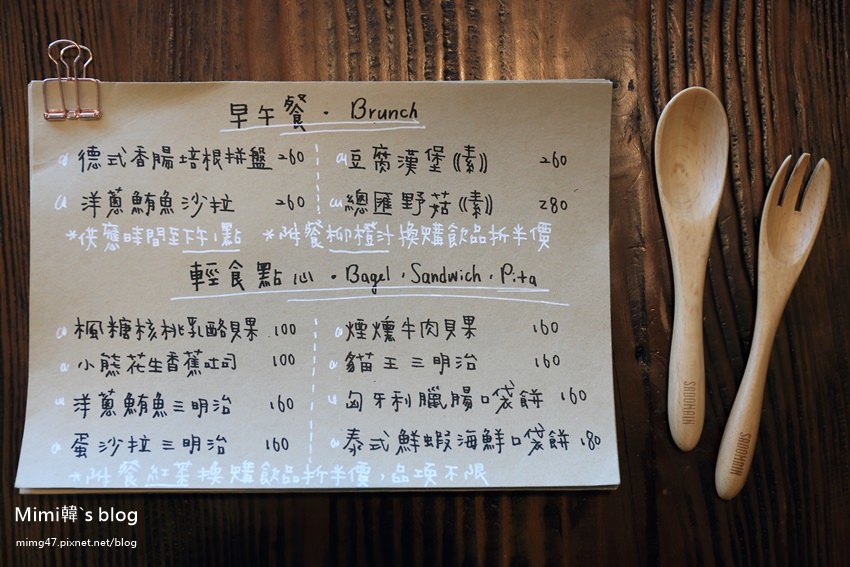 早午餐 · Brunch
德式香腸培根拼盤 260 豆腐漢堡(素) 260
洋蔥鮪魚沙拉 260 總匯野菇(素) 280
*供應時間至下午1點 *附餐柳橙汁換購飲品折半價
輕食點心 · Bagel · Sandwich · Pita
楓糖核桃乳酪貝果 100 煙燻牛肉貝果 160
小熊花生香蕉吐司 100 貓王三明治 160
洋蔥鮪魚三明治 160 匈牙利臘腸口袋餅 160
蛋沙拉三明治 160 泰式鮮蝦海鮮口袋餅 180
*附餐紅茶換購飲品折半價,品項不限
SADOMAIN
SADOMAIN
Mimi韓`s blog
mimg47.pixnet.net/blog